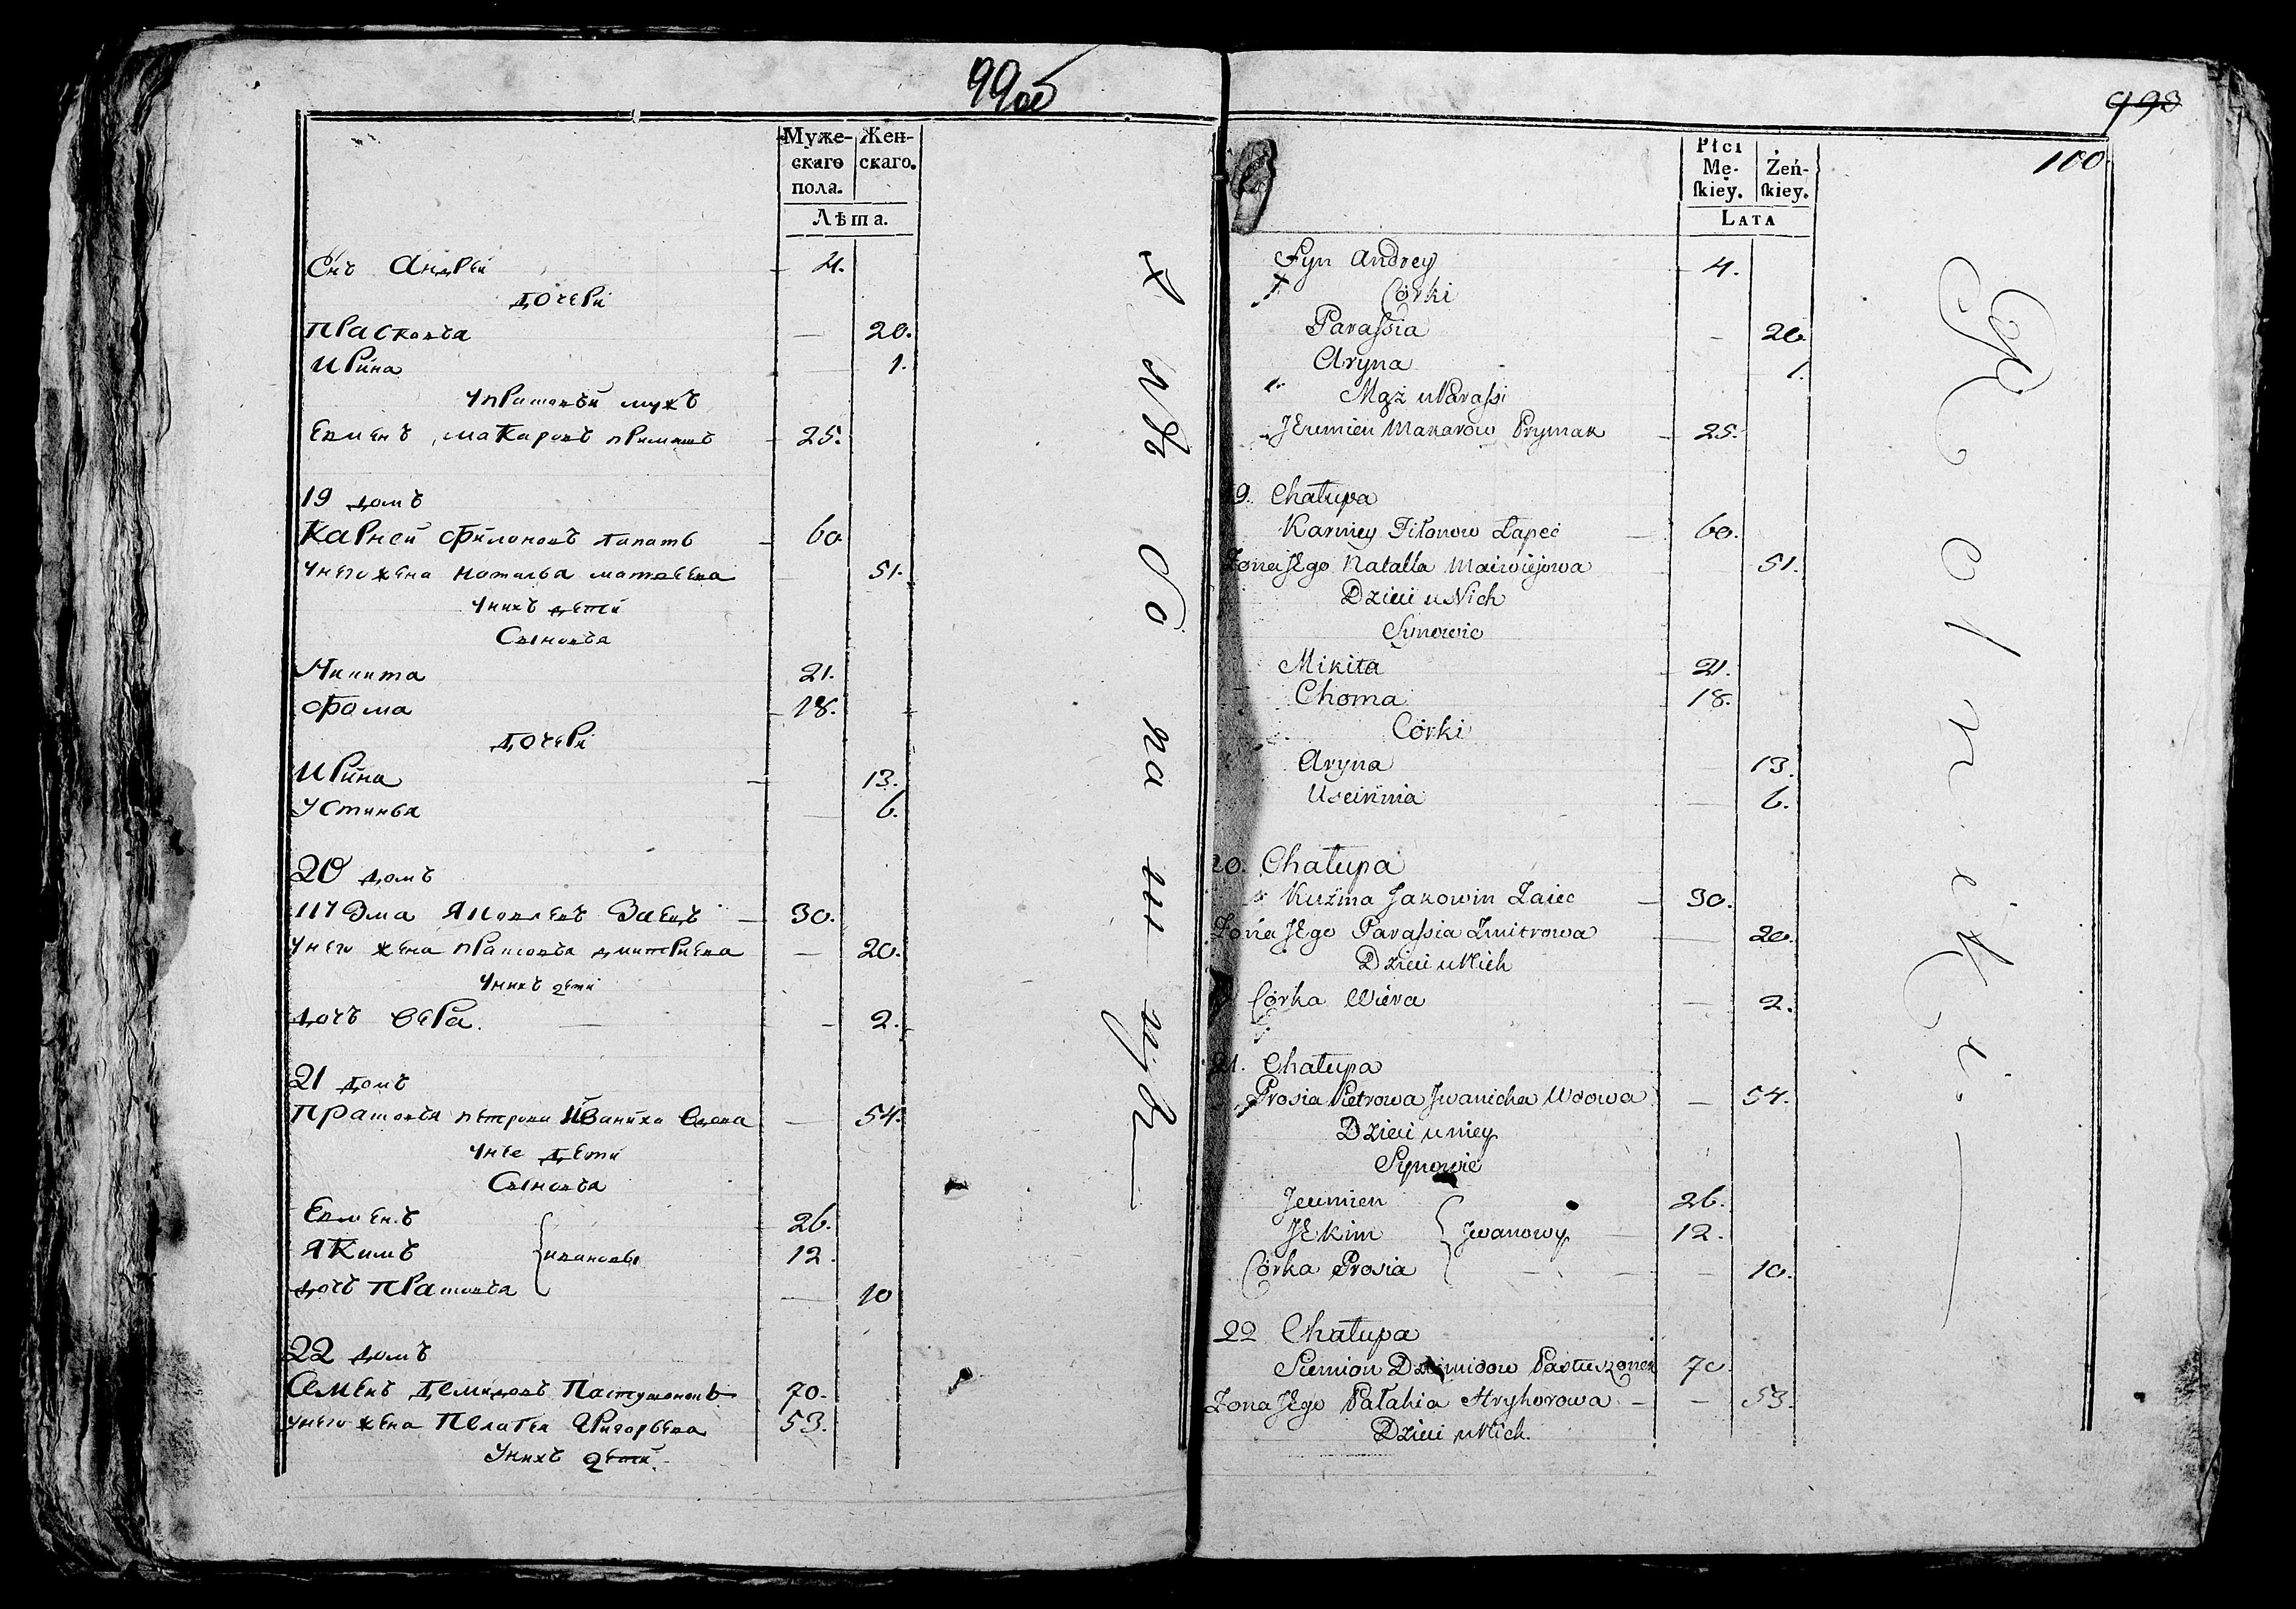 99 об
Муже- Жен-
скаго скаго.
пола.
Лѣта.
Снъ Андрей 4.
дочери
Прасковья — 20.
Ирина 1.
у Прасковьи мужъ
Евменъ Макаровъ примакъ 25.
19 домъ
Карней Филоновъ Лапать 60
у него жена Наталья Матвеева 51.
у нихъ дети
Сыновья
Микита 21.
Фома 18.
дочери
Ирина 13.
Устинья 6.
20 домъ
Кузма Яковлевъ Заецъ 30.
у него жена Прасковья Дмитриева — 20.
у нихъ дети
дочь Вера. — 2.
21 домъ
Прасковья Петрова Иваниха вдова — 54.
у нее дети
Сыновья
Евменъ 26.
Якимъ { Ивановы 12.
дочь Прасковья — 10
22 домъ
Семенъ Демидовъ Пастушонокъ 70.
у него жена Пелагея Григорьева 53.
у нихъ дети.
Хлѣбопашцы
993
100
Płci
Mę- Żeń-
ſkiey. ſkiey.
LATA
Syn Andrey 4.
Córki
Paraſsia — 20
Aryna 1.
Mąż u Paraſsi
JEumien Makarow Prymak 25.
19. Chałupa
Karniey Fiłonow Łapeć 60.
Żona JEgo Natalla Maciwiejowa 51.
Dzieci u Nich
Synowie
Mikita 21.
Choma 18.
Córki
Aryna 13.
Uscinnia 6.
20. Chałupa
Kuźma Jakowin Zaiec 30.
Żona JEgo Paraſsia Zmitrowa 20.
Dzieci u Nich
Córka Wiera — 2.
21. Chałupa
Prosia Pietrowa Jwanicha Wdowa — 54.
Dzieci u niey
Synowie
Jeumien 26.
JEkim { Jwanowy 12.
Córka Prosia — 10.
22 Chałupa
Siemion Dziemidow Pastuszonek 70.
Żona JEgo Pałahia Hryhorowa — 53.
Dzieci u Nich.
Rolnicki.